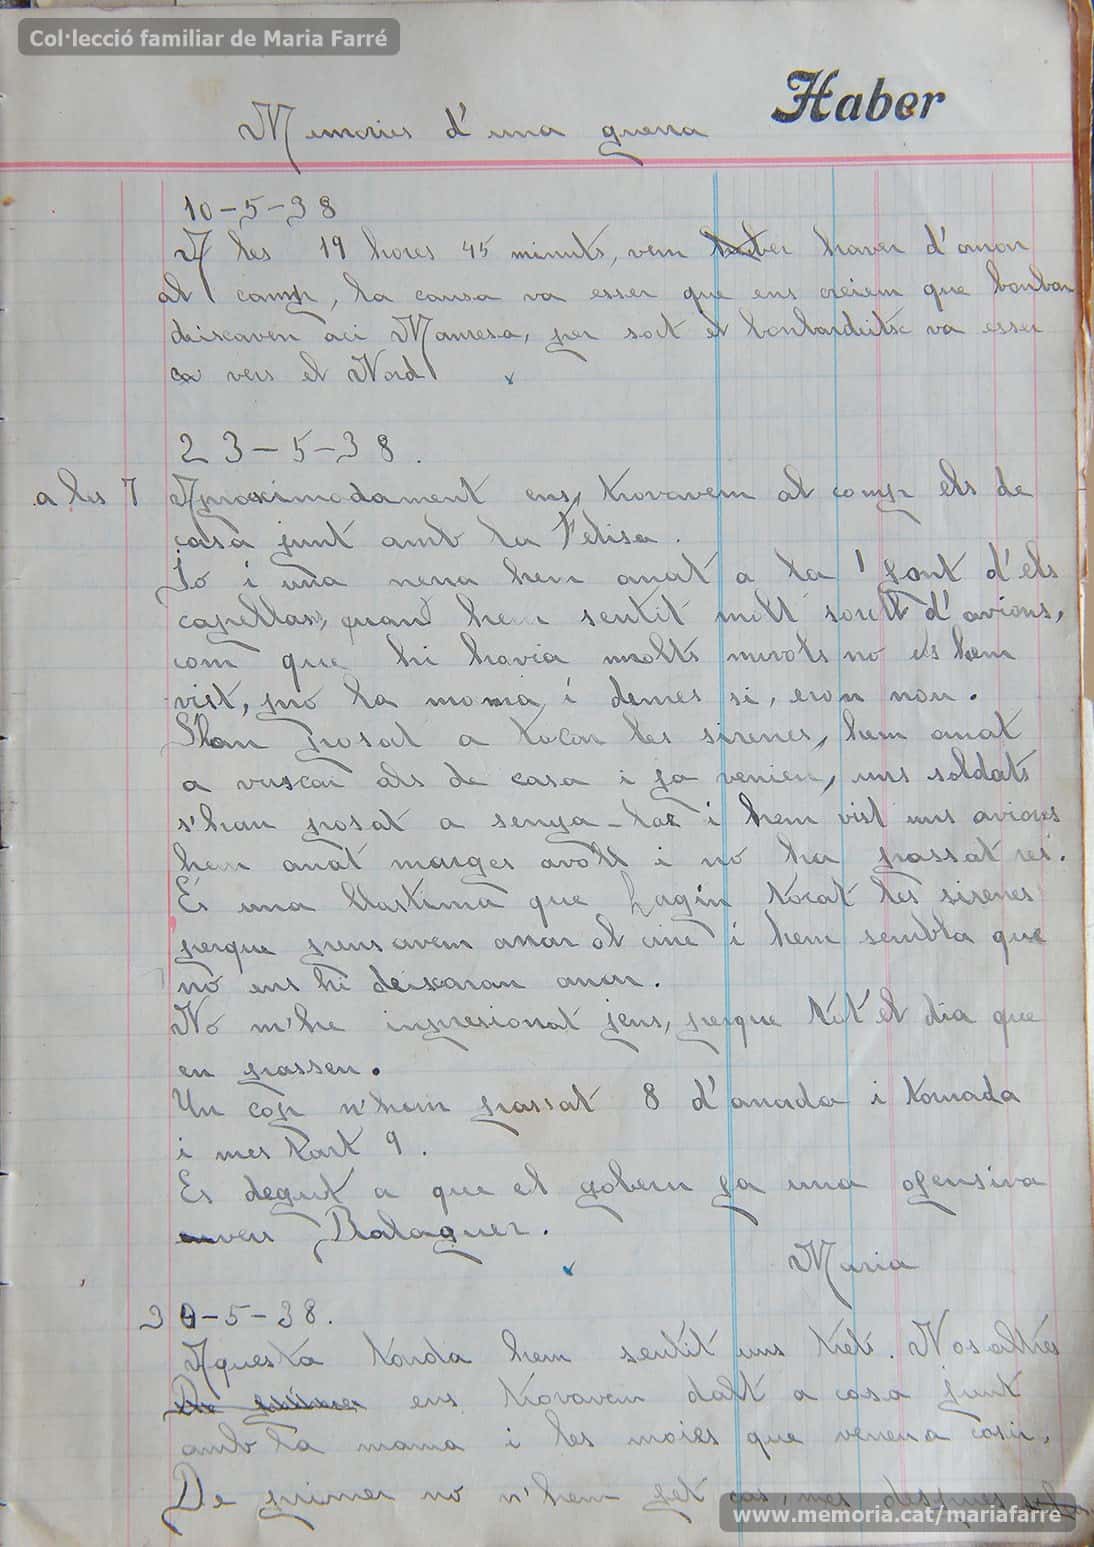 Col·lecció familiar de Maria Farré
Haber
Memories d'una guerra
10-5-38
A les 19 hores 45 minuts, vem haver d'anar
al camp, la causa va esser que ens creiem que bonbar
deixaven aci Manresa, per sort el bonbardeitx va esser
ca vers el Nord
23-5-38.
a les 7 Aproximadament ens trovavem al camp els de
casa junt amb la Felisa.
Jo i una nena hem anat a la font d'els
capellans, quan hem sentit molt soroll d'avions,
com que hi havia molts nuvols no els hem
vist, pró la mamá i demes si, eron nou.
S'han posat a tocar les sirenes, hem anat
a vuscar als de casa i ja venien, uns soldats
s'han posat a senya-lar i hem vist uns avions
hem anat marges avall i no ha passat res.
Es una llastima que hagin tocat les sirenes
perque pensavem anar al cine i hem sembla que
no ens hi deixaran anar.
No m'he inpresionat jens, perque tot el dia que
en passen.
Un cop n'hem passat 8 d'anada i tornada
i mes tart 9.
Es degut a que el gobern fa una ofensiva
vers Balaguer.
Maria
30-5-38.
Aquesta tarda hem sentit uns trets. Nosaltres
ens trovavem dalt a casa junt
amb la mama i les noies que venen a cosir.
De primer no n'hem fet cas, mes despres
www.memoria.cat/mariafarre